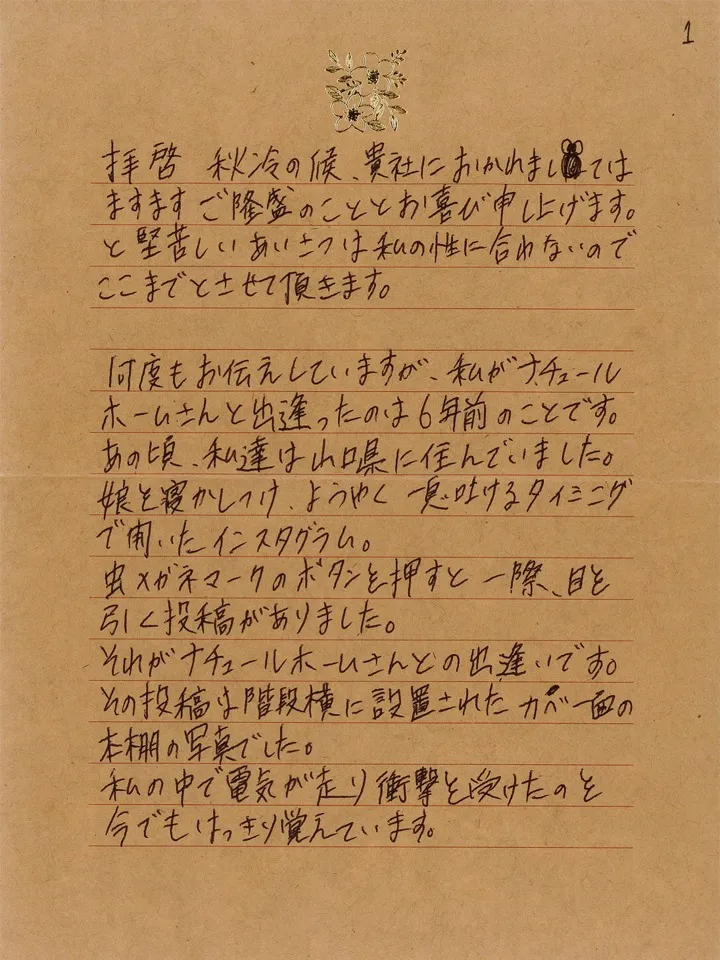 1
拝啓 秋冷の候、貴社におかれましては
ますますご隆盛のこととお喜び申し上げます。
と堅苦しいあいさつは私の性に合わないので
ここまでとさせて頂きます。
何度もお伝えしていますが、私がナチュール
ホームさんと出逢ったのは6年前のことです。
あの頃、私達は山口県に住んでいました。
娘を寝かしつけ、ようやく一息吐けるタイミング
で開いたインスタグラム。
虫メガネマークのボタンを押すと一際、目を
引く投稿がありました。
それがナチュールホームさんとの出逢いです。
その投稿は階段横に設置されたカベ一面の
本棚の写真でした。
私の中で電気が走り衝撃を受けたのを
今でもはっきり覚えています。